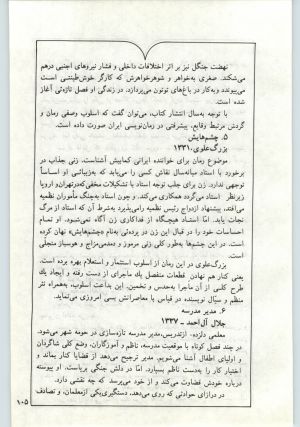 نهضت جنگل نیز بر اثر اختلافات داخلی و فشار نیروهای اجنبی درهم
می‌شکند. صغری به‌خواهر و شوهرخواهرش که کارگر خوش‌طینتی است
می‌پیوندد و به‌کار در باغ‌های توتون می‌پردازد. در زندگی او فصل تازه‌ئی آغاز
شده است.
با توجه به‌سال انتشار کتاب، می‌توان گفت که اسلوب وصفی رمان و
گردش مرتبط وقایع، پیشرفتی در رمان‌نویسی ایران صورت داده است.
۵. چشم‌هایش
بزرگ‌علوی، ۱۳۳۱
موضوع رمان برای خواننده ایرانی کمابیش آشناست. زنی جذاب در
برخورد با استاد میانه‌سال نقاش کسی را می‌یابد که به‌زیبائی او اساساً
توجهی ندارد. زن برای جلب توجه استاد با تشکیلات مخفی که در تهران و اروپا
زیرنظر استاد می‌گردد همکاری می‌کند، و چون استاد به‌چنگ مأموران نظمیه
می‌افتد، پیشنهاد ازدواج رئیس نظمیه را می‌پذیرد به‌شرط آن که استاد از مرگ
نجات یابد. اما استاد هیچگاه از فداکاری زن آگاه نمی‌شود. او تمام
احساسات خود را در قبال این زن در پرده‌ئی به‌نام «چشم‌هایش» نهان کرده
است. در این چشم‌ها به‌طور کلی زنی مرموز و دمدمی‌مزاج و هوسباز متجلی
است.
بزرگ‌علوی در این رمان از اسلوب استثمار و استعلام بهره برده است.
یعنی کنار هم نهادن قطعات منفصل یك ماجرای از دست رفته و ایجاد یك
طرح کلی از آن ماجرا به‌حدس و تخمین. این بداعت اسلوب، به‌همراه نثر
منظم و سیّال نویسنده در قیاس با معاصرانش بسی امروزی می‌نماید.
۶. مدیر مدرسه
جلال آل‌احمد ـ ۱۳۳۷
معلمی دلزده، ازتدریس، مدیر مدرسه تازه‌سازی در حومه شهر می‌شود.
در چند فصل کوتاه با موقعیت مدرسه، ناظم و آموزگاران، وضع کلی شاگردان
و اولیای اطفال آشنا می‌شویم. مدیر ترجیح می‌دهد از قضایا کنار بماند و
اختیار کار را به‌دست ناظم بسپارد. اما در دلش جنگی برپاست. او پیوسته
درباره خودش قضاوت می‌کند و از خود می‌پرسد که چه نقشی دارد.
در درازای حوادثی که روی می‌دهد، دستگیری‌یکی ازمعلمان، و تصادف
۱۰۵